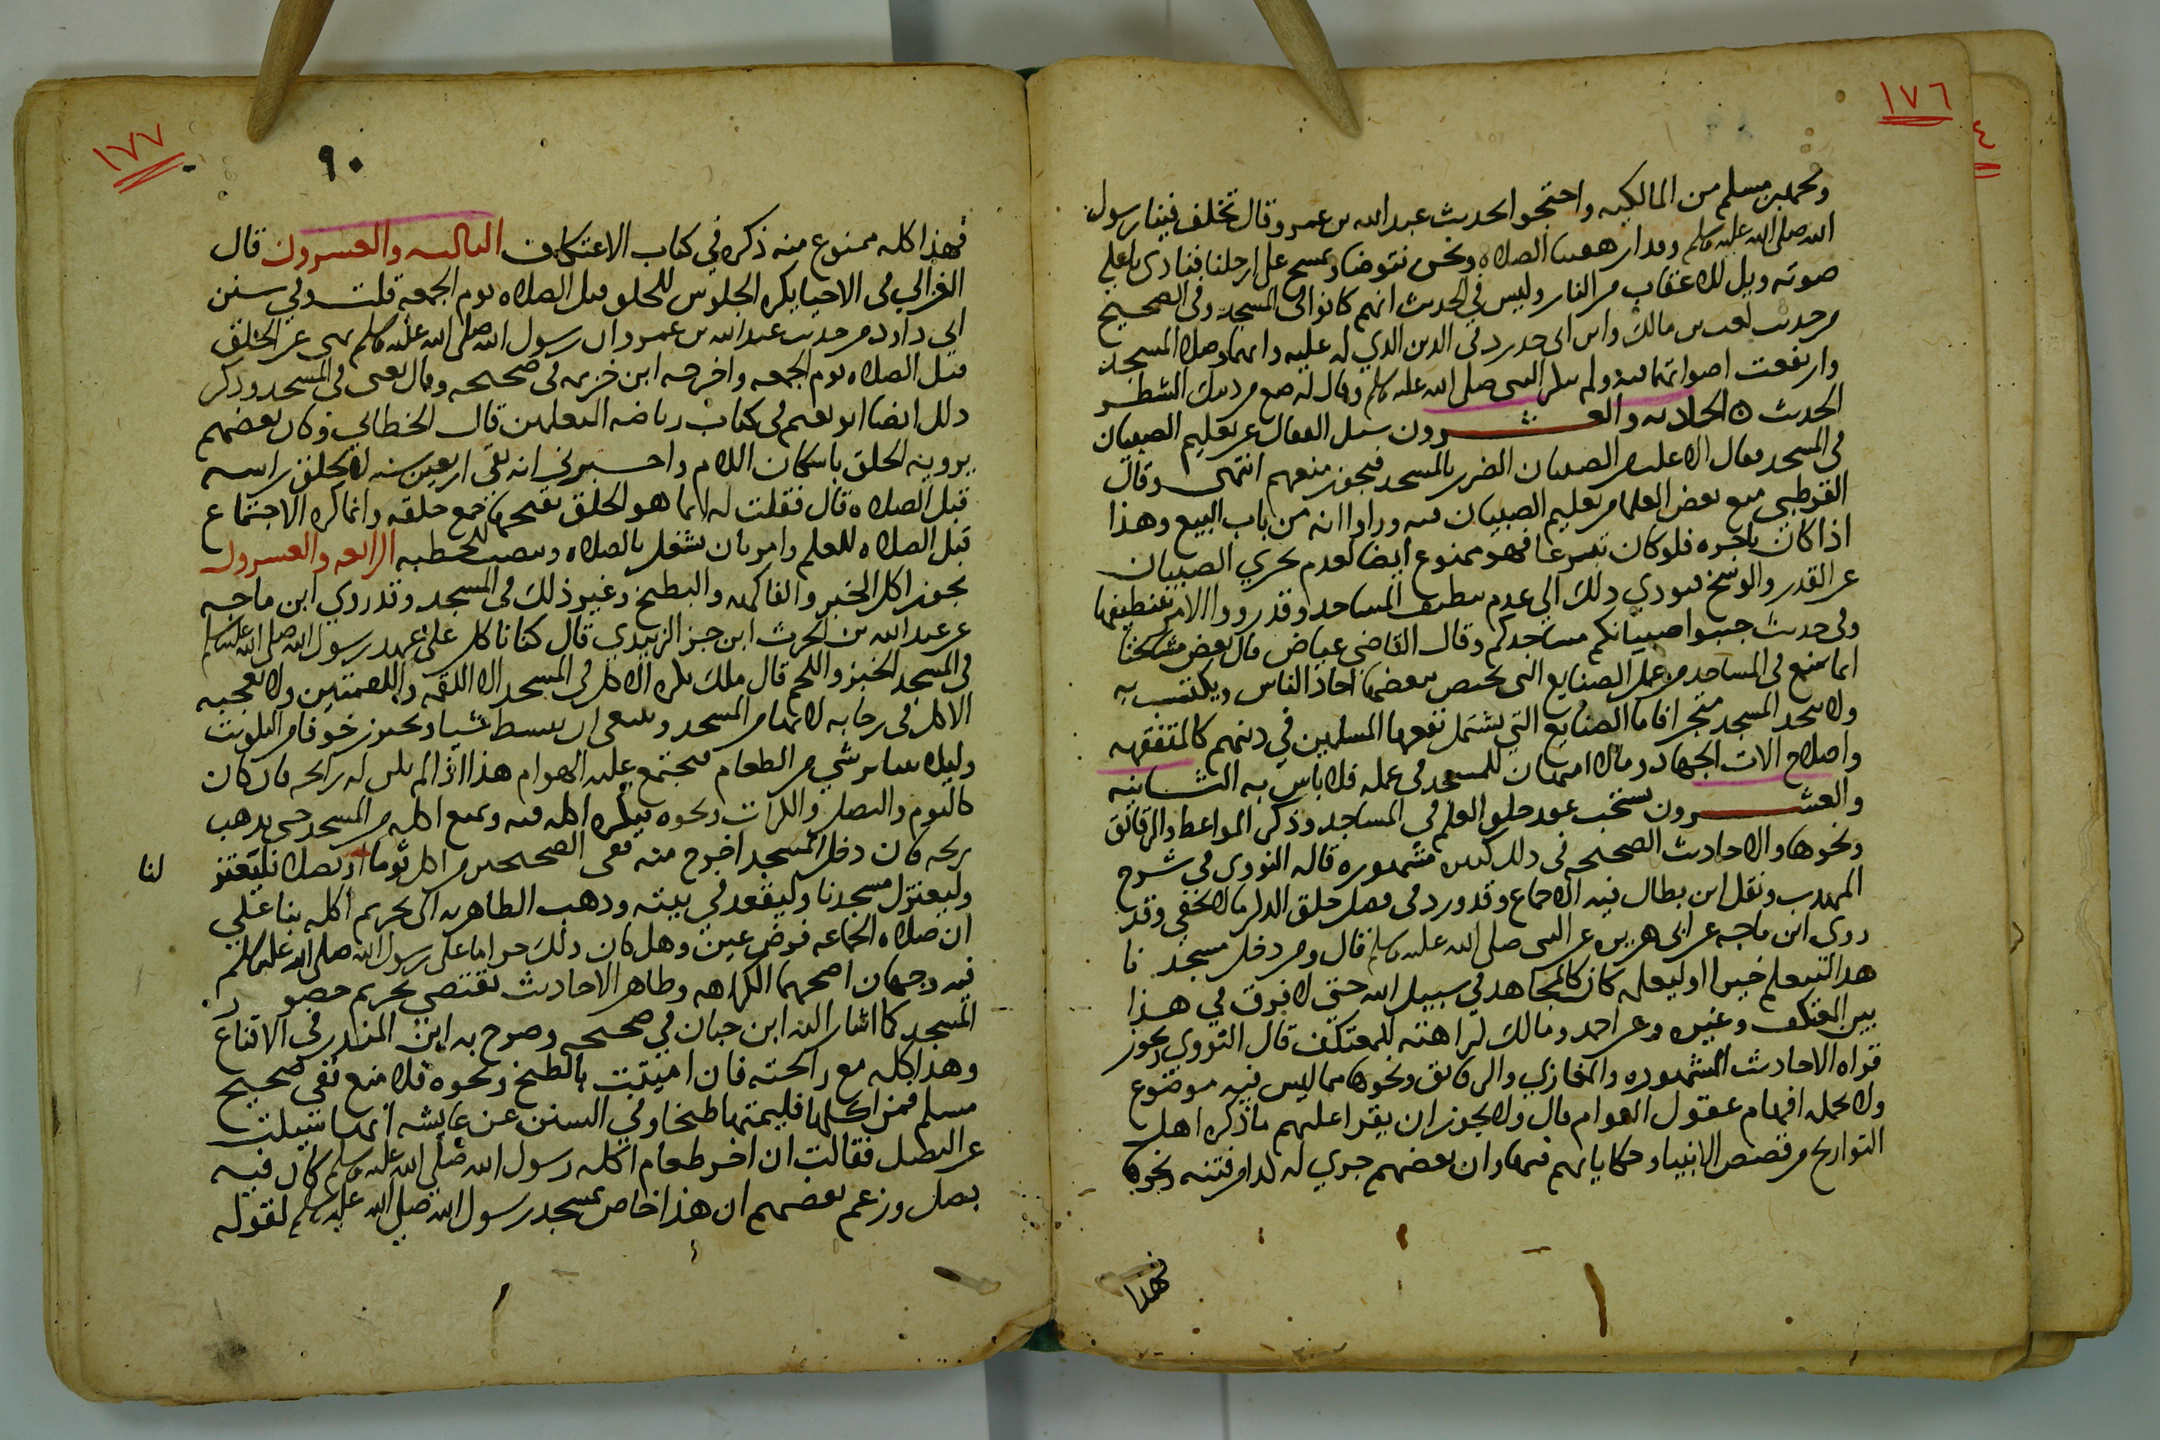 ١٧٦
ومحمد بن مسلم من المالكيه واحتجوا بحديث عبد الله بن عمر وقال تخلف فينا رسول
الله صلى الله عليه وسلم وقد ارهقنا الصلاه ونحن نتوضا ونمسح على ارجلنا فنادى باعلى
صوته ويل للاعقاب من النار وليس في الحديث انهم كانوا في المسجد وفي الصحيح
من حديث كعب بن مالك وابن ابي حدرد في الدين الذي له عليه وانهما دخلا المسجد
وارتفعت اصواتهما فيه ولم ينكر النبي صلى الله عليه وسلم وقال له ضع من دينك الشطر
الحديث ه الحاديه والعشرون سئل القفال عن تعليم الصبيان
في المسجد فقال الاغلب من الصبيان الضرر بالمسجد فيجوز منعهم انتهى وقال
القرطبي منع بعض العلما من تعليم الصبيان فيه وراوا انه من باب البيع وهذا
اذا كان باجره فلو كان تبرعا فهو ممنوع ايضا لعدم تحري الصبيان
عن القدر والوسخ فيودي ذلك الي عدم تنظيف المساجد وقد ورد الامر بتنظيفها
وفي حديث جنبوا صبيانكم مساجدكم وقال القاضي عياض قال بعض مشايخنا
انما يمنع في المساجد من عمل الصنايع التي يختص بنفعها احاد الناس ويكتسب به
ولا يتخذ المسجد متجرا فاما الصنايع التي يشمل نفعها المسلمين في دينهم كالمتفقهه
واصلاح الات الجهاد ومالا امتهان للمسجد في عمله فلا باس به الثانيه
والعشرون يستحب عقد حلق العلم في المساجد وذكر المواعظ والرقائق
ونحوها والاحاديث الصحيحه في ذلك كثيره مشهوره قاله النووي في شرح
المهذب ونقل ابن بطال فيه الاجماع وقد ورد في فضل حلق الذكر مالا يخفى وقد
روى ابن ماجه عن ابي هريره عن النبي صلى الله عليه وسلم قال ومن دخل مسجدنا
هذا ليتعلم خيرا او ليعلمه كان كالمجاهد في سبيل الله حتى لا فرق في هذا
بين المعتكف وغيره وعن احمد ومالك كراهته للمعتكف قال النووي ويجوز
قراه الاحاديث المشهوره والمغازي والرقائق ونحوها مما ليس فيه موضوع
ولا تحمله افهام عقول العوام قال ولا يجوز ان يقرا عليهم ما ذكره اهل
التواريخ من قصص الانبيا وحكاياتهم فيها وان بعضهم جري له كذا من فتنه ونحوها
فهذا
١٧٧
٩٠
فهذا كله ممنوع منه ذكره في كتاب الاعتكاف الثالثه والعشرون قال
الغزالي في الاحيا يكره الجلوس للحلق قبل الصلاه يوم الجمعه قلت وفي سنن
ابي داود من حديث عبد الله بن عمرو ان رسول الله صلى الله عليه وسلم نهى عن الحلق
قبل الصلاه يوم الجمعه واخرجه ابن خزيمه في صحيحه وقال يعني في المسجد وذكر
ذلك ايضا ابو نعيم في كتاب رياضه المتعلمين قال الخطابي وكان بعضهم
يرويه الحلق باسكان اللام واخبرني انه بقي اربعين سنه لا يحلق راسه
قبل الصلاه قال فقلت له انما هو الحلق بفتحها جمع حلقه وانما كره الاجتماع
قبل الصلاه للعلم وامر بان يشتغل بالصلاه وينصت للخطبه الرابعه والعشرون
يجوز اكل الخبز والفاكهه والبطيخ وغير ذلك في المسجد وقد روي ابن ماجه
عن عبد الله بن الحرث ابن جز الزبيدي قال كنا ناكل على عهد رسول الله صلى الله عليه وسلم
في المسجد الخبز واللحم قال ملك يكره الاكل في المسجد الا اللقمه واللقمتين ولا يعجبه
الاكل في رحابه لانها من المسجد وينبغى ان يبسط شيا ويحترز خوفا من التلويث
وليلا يتناثر شي من الطعام فيجتمع عليه الهوام هذا اذا لم يكن له رائحه فان كان
كالثوم والبصل والكراث ونحوه فيكره اكله فيه ويمنع اكله من المسجد حتى يذهب
ريحه فان دخل المسجد اخرج منه ففى الصحيحين من اكل ثوما او بصلا فليعتز
لنا
وليعتزل مسجدنا وليقعد في بيته وذهب الظاهريه الى تحريم اكله بنا على
ان صلاه الجماعه فرض عين وهل كان ذلك حراما على رسول الله صلى الله عليه وسلم
فيه وجهان اصحهما الكراهه وظاهر الاحاديث تقتضي تحريم حضور
المسجد كما اشار اليه ابن حبان في صحيحه وصرح به ابن المنذر في الاقناع
وهذا كله مع رائحته فان اميتت بالطبخ ونحوه فلا منع ففى صحيح
مسلم فمن اكلها فليمتها طبخا وفي السنن عن عايشه انها سيلت
عن البصل فقالت ان اخر طعام اكله رسول الله صلى الله عليه وسلم كان فيه
بصل وزعم بعضهم ان هذا خاص بمسجد رسول الله صلى الله عليه وسلم لقوله